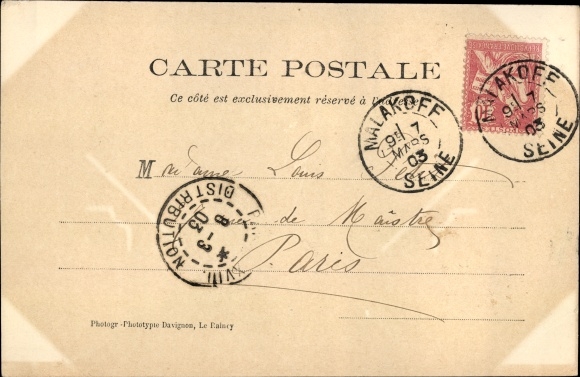 CARTE POSTALE
Ce côté est exclusivement réservé à l'adresse
MALAKOFF
9E 7
MARS
03
SEINE
MALAKOFF
9E 7
MARS
03
SEINE
Madame Louis
de Maistre
Paris
DISTRIBUTION
XVIII
8 -3
03
Photogr-Phototypie Davignon, Le Raincy